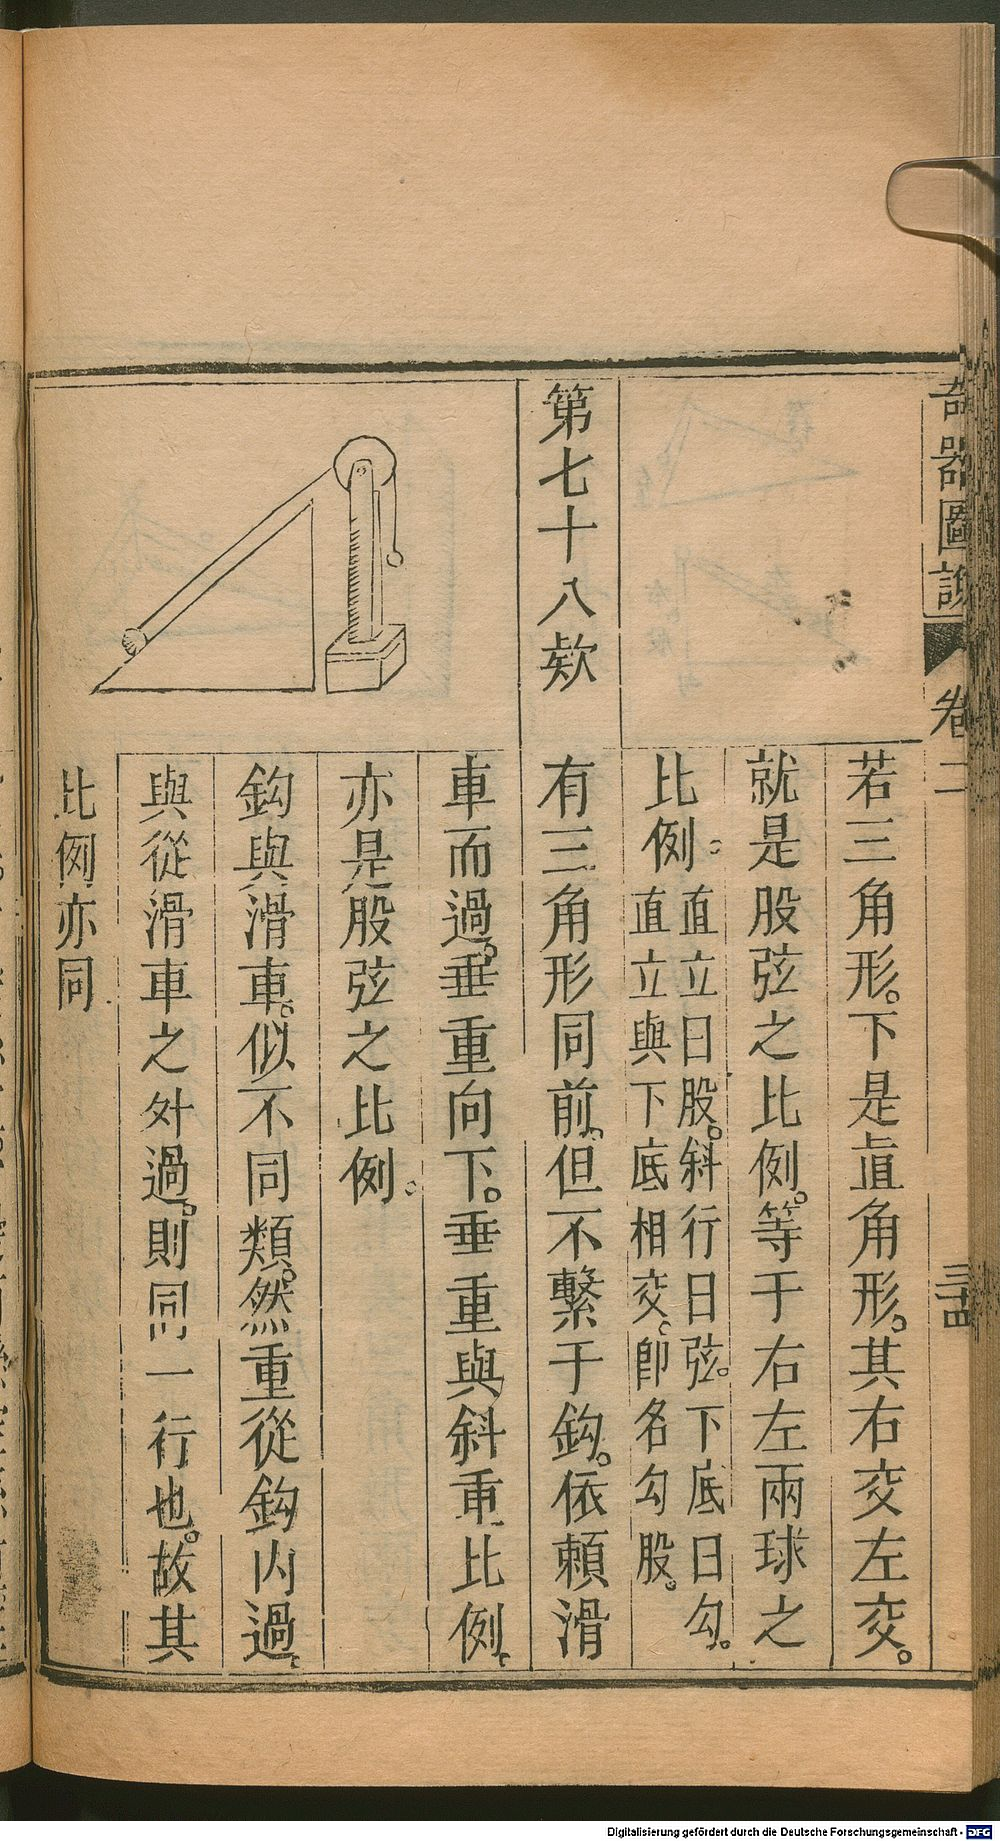 奇器圖說
卷二
三十四
若三角形。下是直角形。其右交左交。
就是股弦之比例。等于右左兩球之
比例。
直立曰股。斜行曰弦。下底曰勾。
直立與下底相交。卽名勾股。
第七十八欵
有三角形同前。但不繫于鈎。依賴滑
車而過。垂重向下。垂重與斜重比例。
亦是股弦之比例。
鈎與滑車。似不同類。然重從鈎內過。
與從滑車之外過。則同一行也。故其
比例亦同
Digitalisierung gefördert durch die Deutsche Forschungsgemeinschaft - DFG